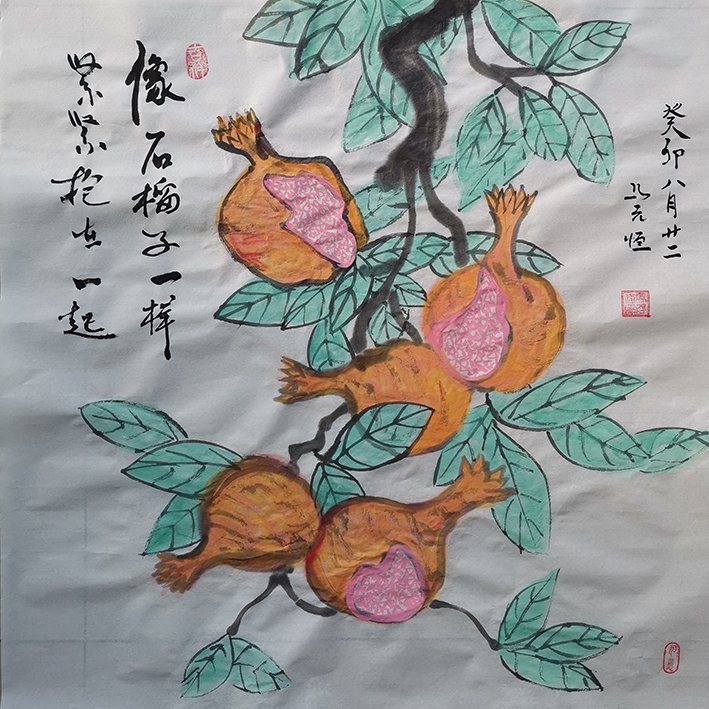 像石榴子一样
紧紧抱在一起
癸卯八月廿二
恒